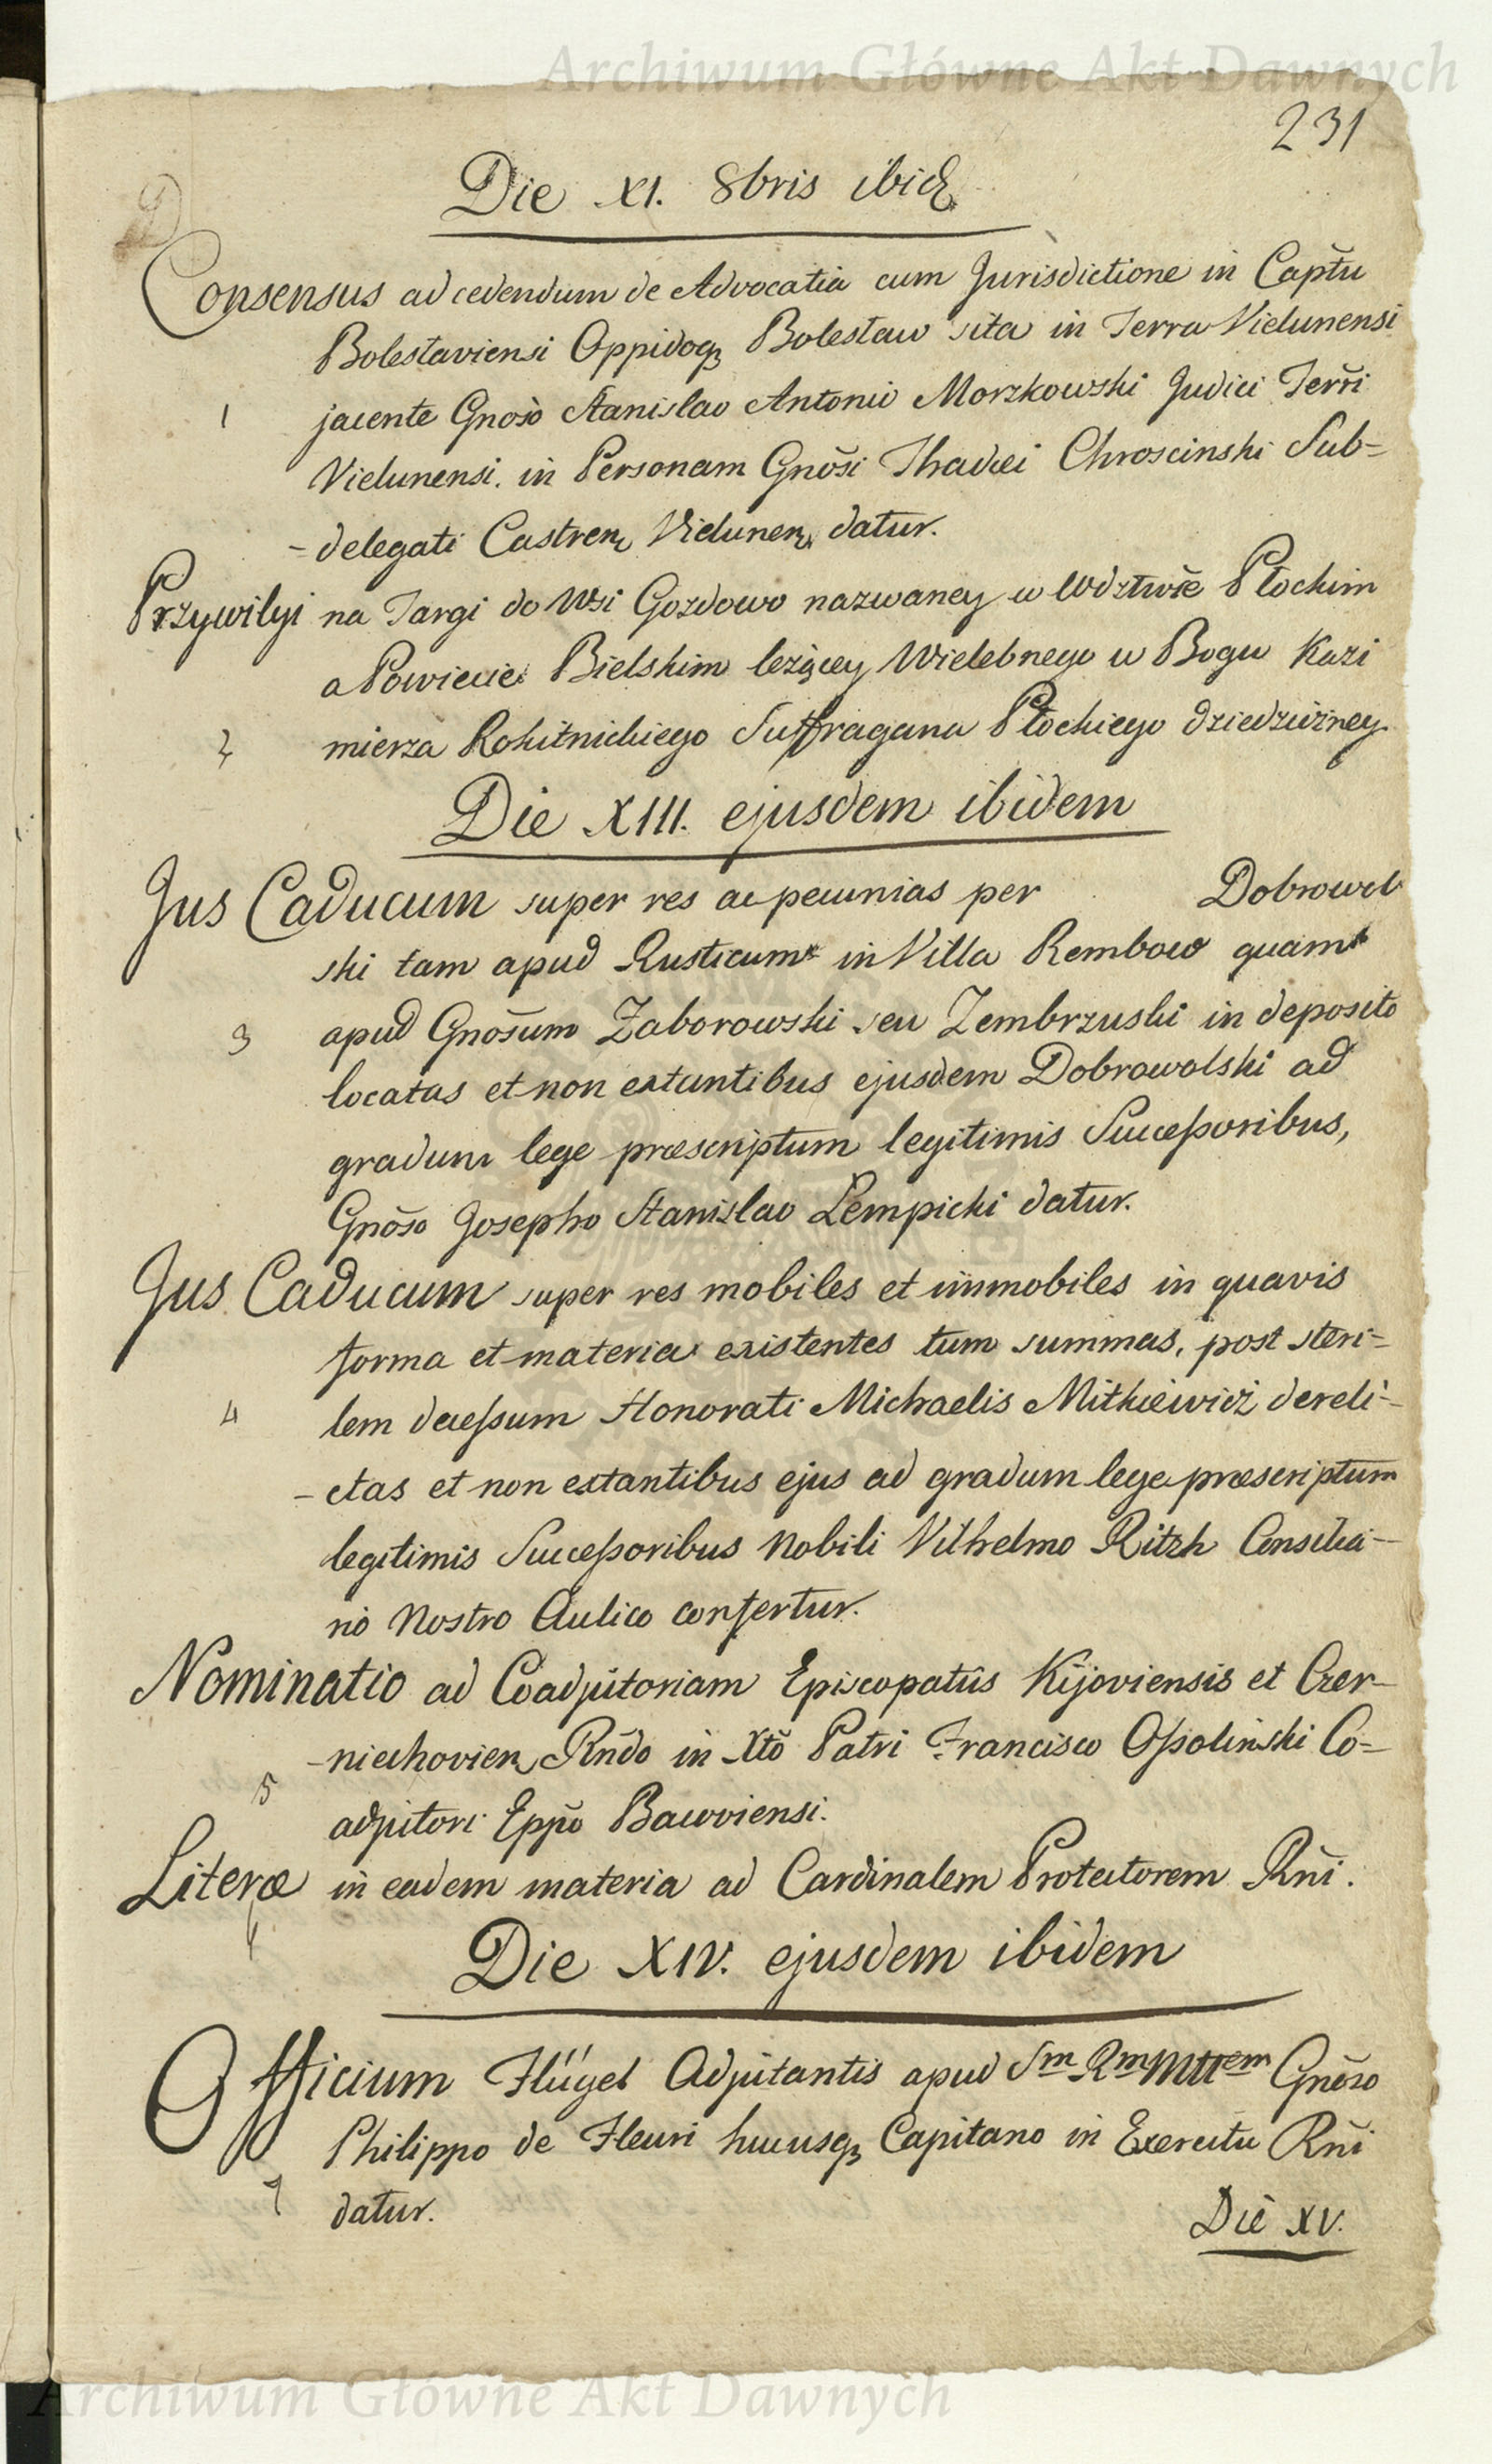 Archiwum Główne Akt Dawnych
231
Die XI. 8bris ibid
Consensus ad cedendum de Advocatia cum Jurisdictione in Captu
Boleslaviensi Oppidoq3 Bolesław sita in Terra Vielunensi
1 jacente Gnoso Stanislao Antonio Morzkowski Judici Terri
Vielunensi. in Personam Gnosi Thadæi Chroscinski Sub=
=delegati Castren Vielunen datur.
Przywilyi na Targi do Wsi Gozdowo nazwaney w Wdztwie Płockim
a Powiecie Bielskim leżącey Wielebnego w Bogu Kazi
2 mierza Rokitnickiego Suffragana Płockiego dziedziczney
Die XIII. ejusdem ibidem
Jus Caducum super res ac pecunias per Dobrowol
ski tam apud Rusticum in Villa Rembow quam
3 apud Gnosum Zaborowski seu Zembrzuski in deposito
locatas et non extantibus ejusdem Dobrowolski ad
gradum lege præscriptum legitimis Successoribus,
Gnoso Josepho Stanislao Lempicki datur.
Jus Caducum super res mobiles et immobiles in quavis
forma et materia existentes tum summas, post steri=
4 lem decessum Honorati Michaelis Mitkiewicz dereli-
-ctas et non extantibus ejus ad gradum lege præscriptum
legitimis Successoribus Nobili Vilhelmo Ritzh Consilia-
rio Nostro Aulico confertur.
Nominatio ad Coadjutoriam Episcopatûs Kijoviensis et Czer-
-niechovien Rndo in Xto Patri Francisco Ossolinski Co=
5 adjutori Eppo Bacoviensi.
Literæ in eadem materia ad Cardinalem Protectorem Rni.
Die XIV. ejusdem ibidem
Officium Flügel Adjutantis apud Sm Rm Mttem Gnoso
Philippo de Fleuri hucusq3 Capitano in Exercitu Rni
7 datur.
Die XV.
Archiwum Główne Akt Dawnych